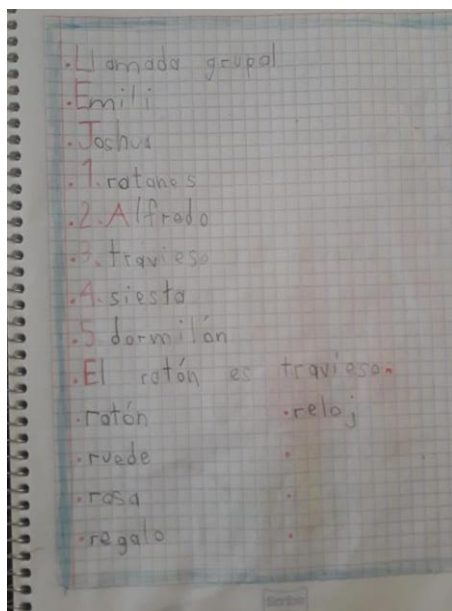 .Llamada grupal
.Emili
.Joshua
.1.ratones
.2.Alfredo
.3.travieso
.4.siesta
.5 dormilón
.El ratón es travieso.
.ratón .reloj
.ruede .
.rosa .
.regalo .
Scribe